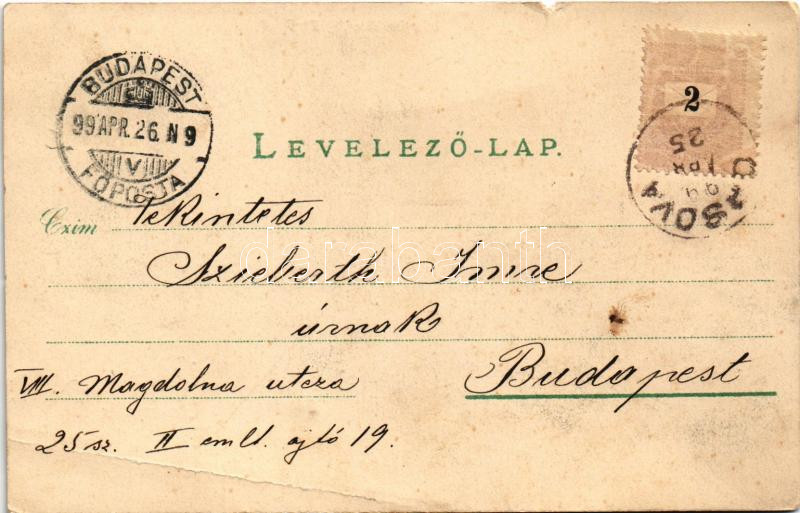 BUDAPEST
99 APR. 26. N 9
V
FŐPOSTA
2
25
APR
99
ORSOVA
LEVELEZŐ-LAP.
Czim Tekintetes
Szieberth Imre
úrnak
Budapest
VIII. Magdolna utcza
25 sz. II emlt. ajtó 19.
darabanth